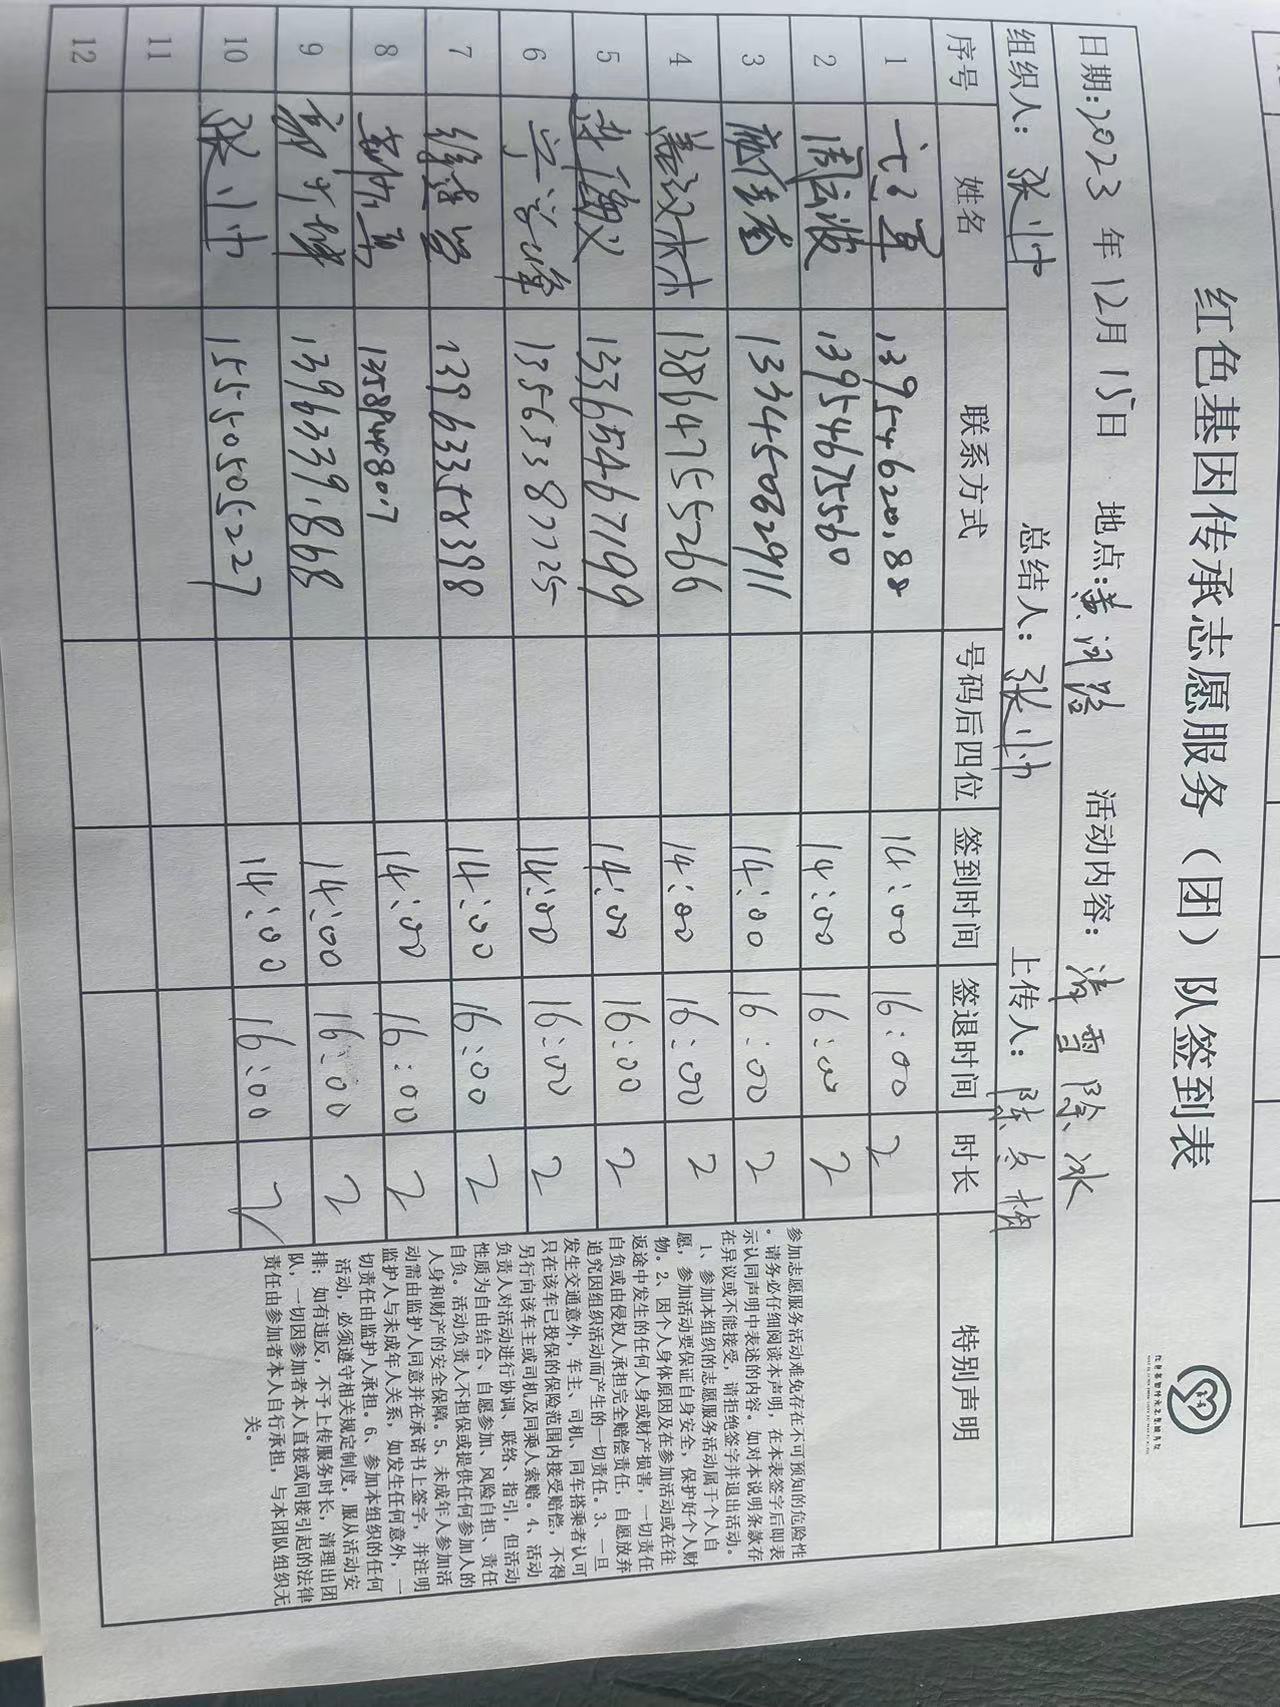 红色基因传承志愿服务（团）队签到表
日期:2023年12月15日 地点:黄河路 活动内容: 清雪除冰
组织人: 张帅 总结人: 张帅 上传人: 陈
序号 姓名 联系方式 号码后四位 签到时间 签退时间 时长 特别声明
1 14:00 16:00 2
2 周云波 13954675560 14:00 16:00 2
3 13345062911 14:00 16:00 2
4 13864755266 14:00 16:00 2
5 13365467199 14:00 16:00 2
6 14:00 16:00 2
7 14:00 16:00 2
8 14:00 16:00 2
9 14:00 16:00 2
10 张帅 15550505227 14:00 16:00 2
11
12
参加志愿服务活动难免存在不可预知的危险性
。请务必仔细阅读本声明，在本表签字后即表
示认同声明中表述的内容。如对本说明条款存
在异议或不能接受，请拒绝签字并退出活动。
1、参加本组织的志愿服务活动属于个人自
愿，参加活动要保证自身安全，保护好个人财
物。2、因个人身体原因及在参加活动或在往
返途中发生的任何人身或财产损害，一切责任
自负或由侵权人承担完全赔偿责任，自愿放弃
追究因组织活动而产生的一切责任。3、一旦
发生交通意外，车主、司机、同车搭乘者认可
只在该车已投保的保险范围内接受赔偿，不得
另行向该车主或司机及同乘人索赔。4、活动
负责人对活动进行协调、联络、指引，但活动
性质为自由结合、自愿参加、风险自担、责任
自负。活动负责人不担保或提供任何参加人的
人身和财产的安全保障。5、未成年人参加活
动需由监护人同意并在承诺书上签字，并注明
监护人与未成年人关系，如发生任何意外，一
切责任由监护人承担。6、参加本组织的任何
活动，必须遵守相关规定制度，服从活动安
排；如有违反，不予上传服务时长，清理出团
队，一切因参加者本人直接或间接引起的法律
责任由参加者本人自行承担，与本团队组织无
关。